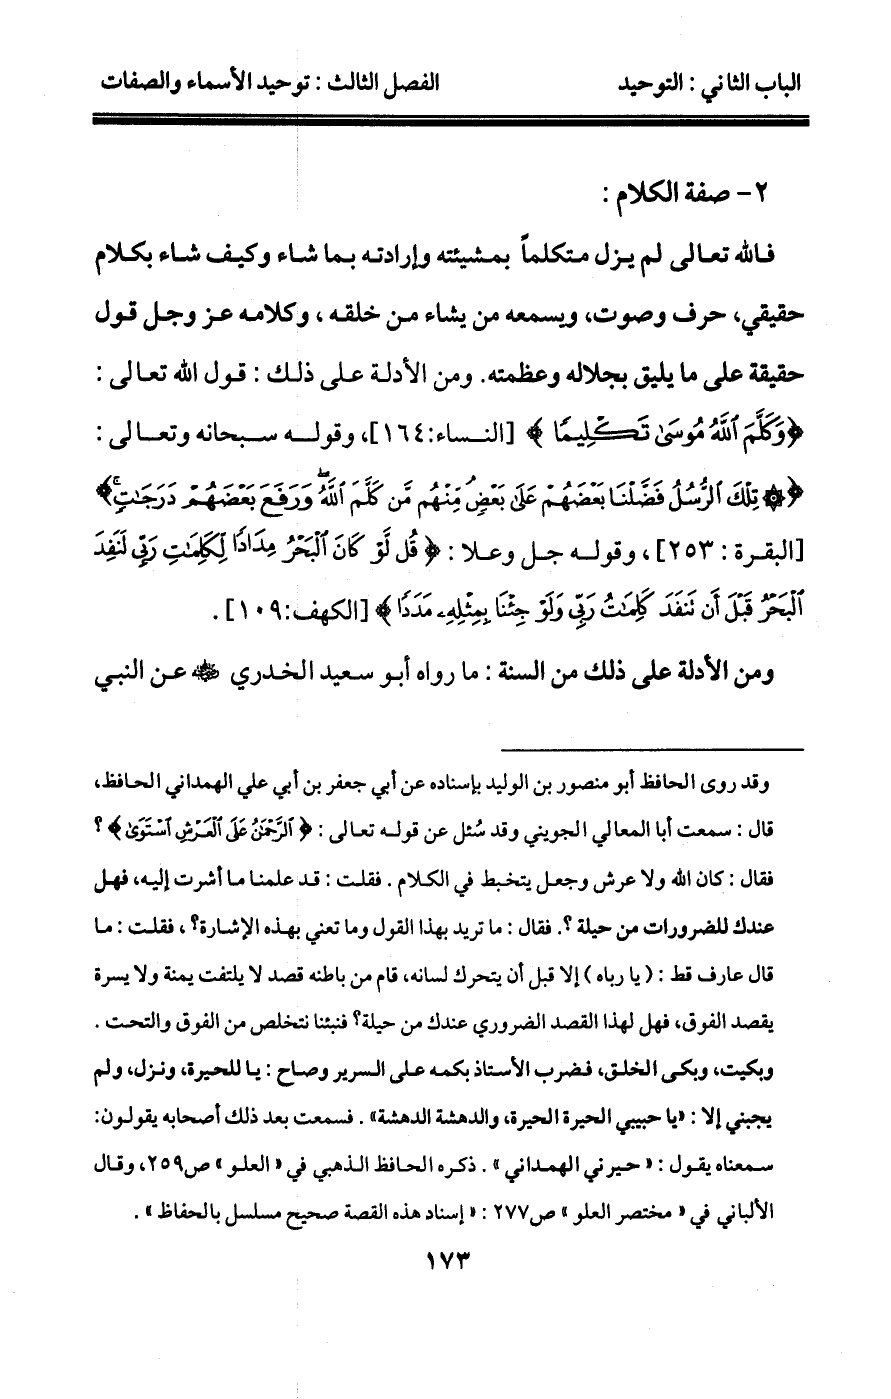 الباب الثاني : التوحيد
الفصل الثالث : توحيد الأسماء والصفات
٢- صفة الكلام :
فالله تعالى لم يزل متكلماً بمشيئته وإرادته بما شاء وكيف شاء بكلام
حقيقي، حرف وصوت، ويسمعه من يشاء من خلقه ، وكلامه عز وجل قول
حقيقة على ما يليق بجلاله وعظمته. ومن الأدلة على ذلك : قول الله تعالى :
﴿وَكَلَّمَ ٱللَّهُ مُوسَىٰ تَكْلِيمًا ﴾ [النساء:١٦٤]، وقوله سبحانه وتعالى :
﴿۞ تِلْكَ ٱلرُّسُلُ فَضَّلْنَا بَعْضَهُمْ عَلَىٰ بَعْضٍ مِّنْهُم مَّن كَلَّمَ ٱللَّهُ ۖ وَرَفَعَ بَعْضَهُمْ دَرَجَٰتٍ ۚ﴾
[البقرة : ٢٥٣] ، وقوله جل وعلا : ﴿ قُل لَّوْ كَانَ ٱلْبَحْرُ مِدَادًا لِّكَلِمَٰتِ رَبِّي لَنَفِدَ
ٱلْبَحْرُ قَبْلَ أَن تَنفَدَ كَلِمَٰتُ رَبِّي وَلَوْ جِئْنَا بِمِثْلِهِۦ مَدَدًا ﴾ [الكهف:١٠٩] .
ومن الأدلة على ذلك من السنة : ما رواه أبو سعيد الخدري رضي الله عنه عن النبي
وقد روى الحافظ أبو منصور بن الوليد بإسناده عن أبي جعفر بن أبي علي الهمداني الحافظ،
قال : سمعت أبا المعالي الجويني وقد سُئل عن قوله تعالى : ﴿ ٱلرَّحْمَٰنُ عَلَى ٱلْعَرْشِ ٱسْتَوَىٰ ﴾ ؟
فقال : كان الله ولا عرش وجعل يتخبط في الكلام . فقلت : قد علمنا ما أشرت إليه، فهل
عندك للضرورات من حيلة ؟. فقال : ما تريد بهذا القول وما تعني بهذه الإشارة؟ ، فقلت : ما
قال عارف قط : ( يا رباه ) إلا قبل أن يتحرك لسانه، قام من باطنه قصد لا يلتفت يمنة ولا يسرة
يقصد الفوق، فهل لهذا القصد الضروري عندك من حيلة؟ فنبئنا نتخلص من الفوق والتحت .
وبكيت، وبكى الخلق، فضرب الأستاذ بكمه على السرير وصاح : يا للحيرة، ونزل، ولم
يجبني إلا : «يا حبيبي الحيرة الحيرة، والدهشة الدهشة» . فسمعت بعد ذلك أصحابه يقولون:
سمعناه يقول : « حيرني الهمداني » . ذكره الحافظ الذهبي في « العلو » ص٢٥٩، وقال
الألباني في « مختصر العلو » ص٢٧٧ : « إسناد هذه القصة صحيح مسلسل بالحفاظ » .
١٧٣